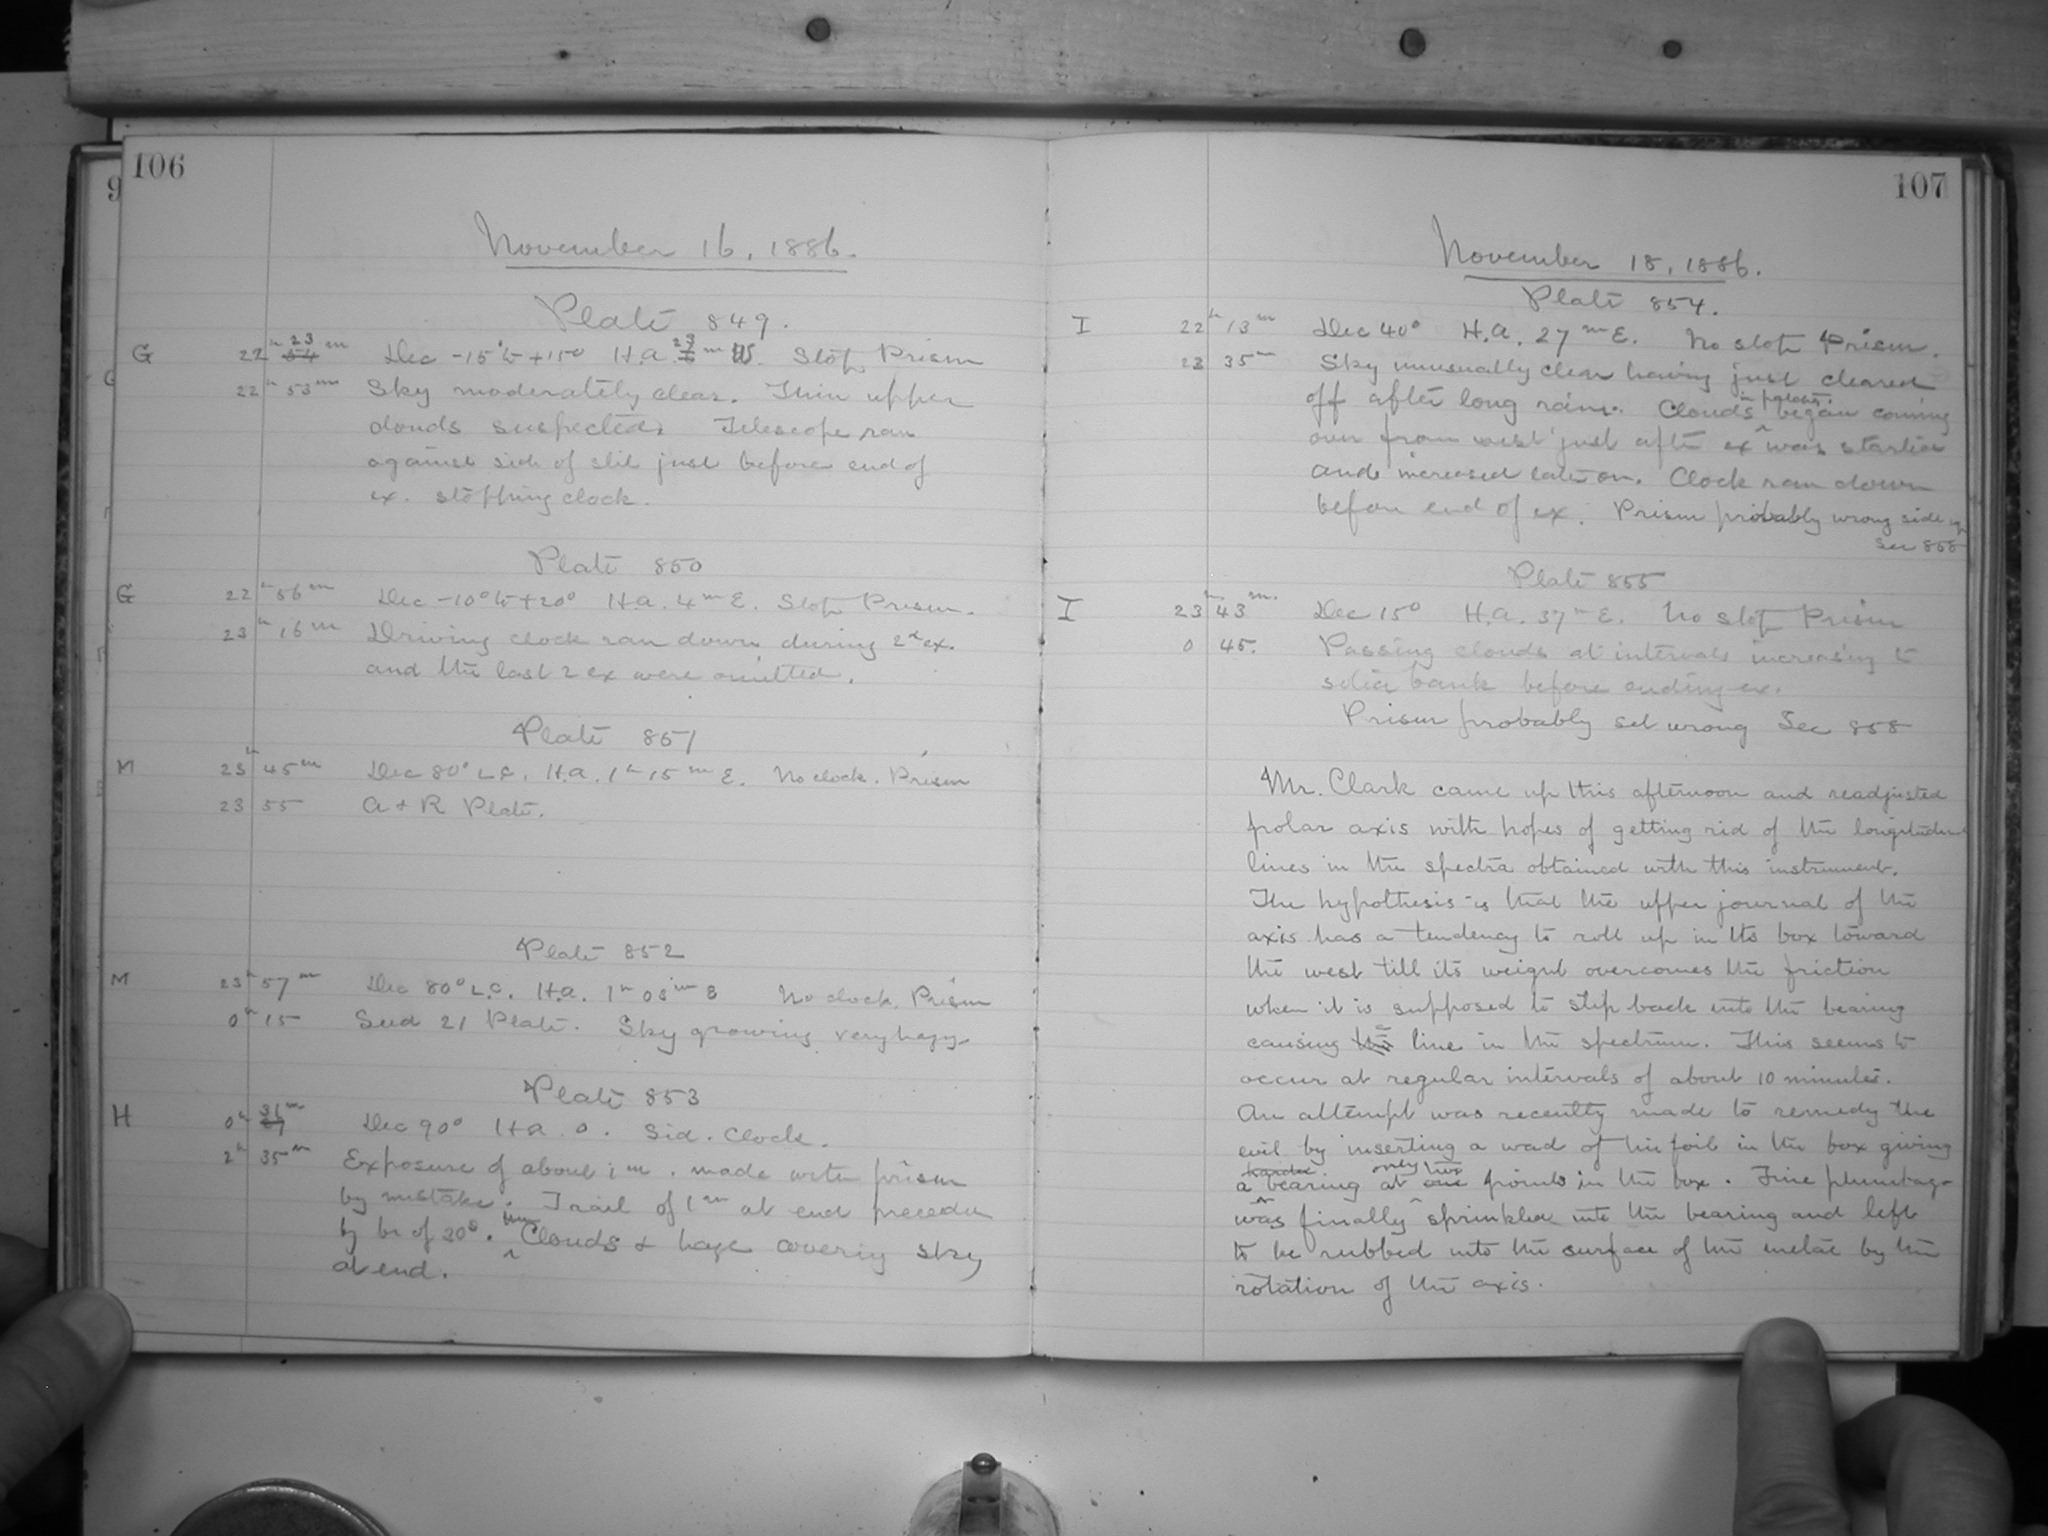 106
November 16, 1886.
Plate 849.
G 22h 23m Dec -15° to +15° H.a. 23m W. Stop Prism
22h 53m Sky moderately clear. Thin upper
clouds suspected. Telescope ran
against side of slit just before end of
ex. stopping clock.
Plate 850
G 22h 56m Dec -10° to +20° H.a. 4m E. Stop Prism.
23h 16m Driving clock ran down during 2d ex.
and the last 2 ex were omitted.
Plate 851
M 23h 45m Dec 80° L.C. H.a. 1h 15m E. No clock. Prism
23 55 A + R Plate.
Plate 852
M 23h 57m Dec 80° L.C. H.a. 1h 03m E No clock. Prism
0h 15 Seed 21 Plate. Sky growing very hazy
Plate 853
H 0h 31m Dec 90° H.a. 0. Sid. Clock.
2h 35m Exposure of about 1m. made with prism
by mistake. Trail of 1m at end preceded
by br of 30s. thin Clouds & haze covering sky
at end.
107
November 18, 1886.
Plate 854.
I 22h 13m Dec 40° H.a. 27m E. No stop Prism.
23 35m Sky unusually clear having just cleared
off after long rain. Clouds began coming
over from west just after ex was started
and increased later on. Clock ran down
before end of ex. Prism probably wrong side up
See 858
Plate 855
I 23h 43m. Dec 15° H.a. 37m E. No stop Prism
0 45. Passing clouds at intervals increasing to
solid bank before ending ex.
Prism probably set wrong See 858
Mr. Clark came up this afternoon and readjusted
polar axis with hopes of getting rid of the longitudinal
lines in the spectra obtained with this instrument.
The hypothesis is that the upper journal of the
axis has a tendency to roll up in its box toward
the west till its weight overcomes the friction
when it is supposed to slip back into the bearing
causing a line in the spectrum. This seems to
occur at regular intervals of about 10 minutes.
An attempt was recently made to remedy the
evil by inserting a wad of tin foil in the box giving
a harder bearing at only two points in the box. Fine plumbago
was finally sprinkled into the bearing and left
to be rubbed into the surface of the metal by the
rotation of the axis.